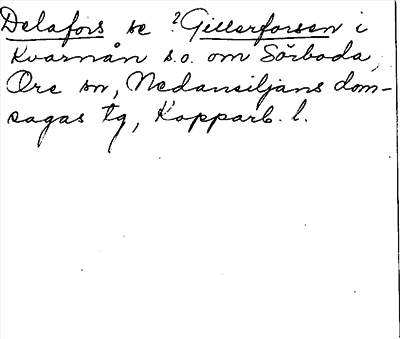 Delafors se ?Gillerforsen i
Kvarnån s.o. om Sörboda,
Ore sn, Nedansiljans dom-
sagas tg, Kopparb. l.